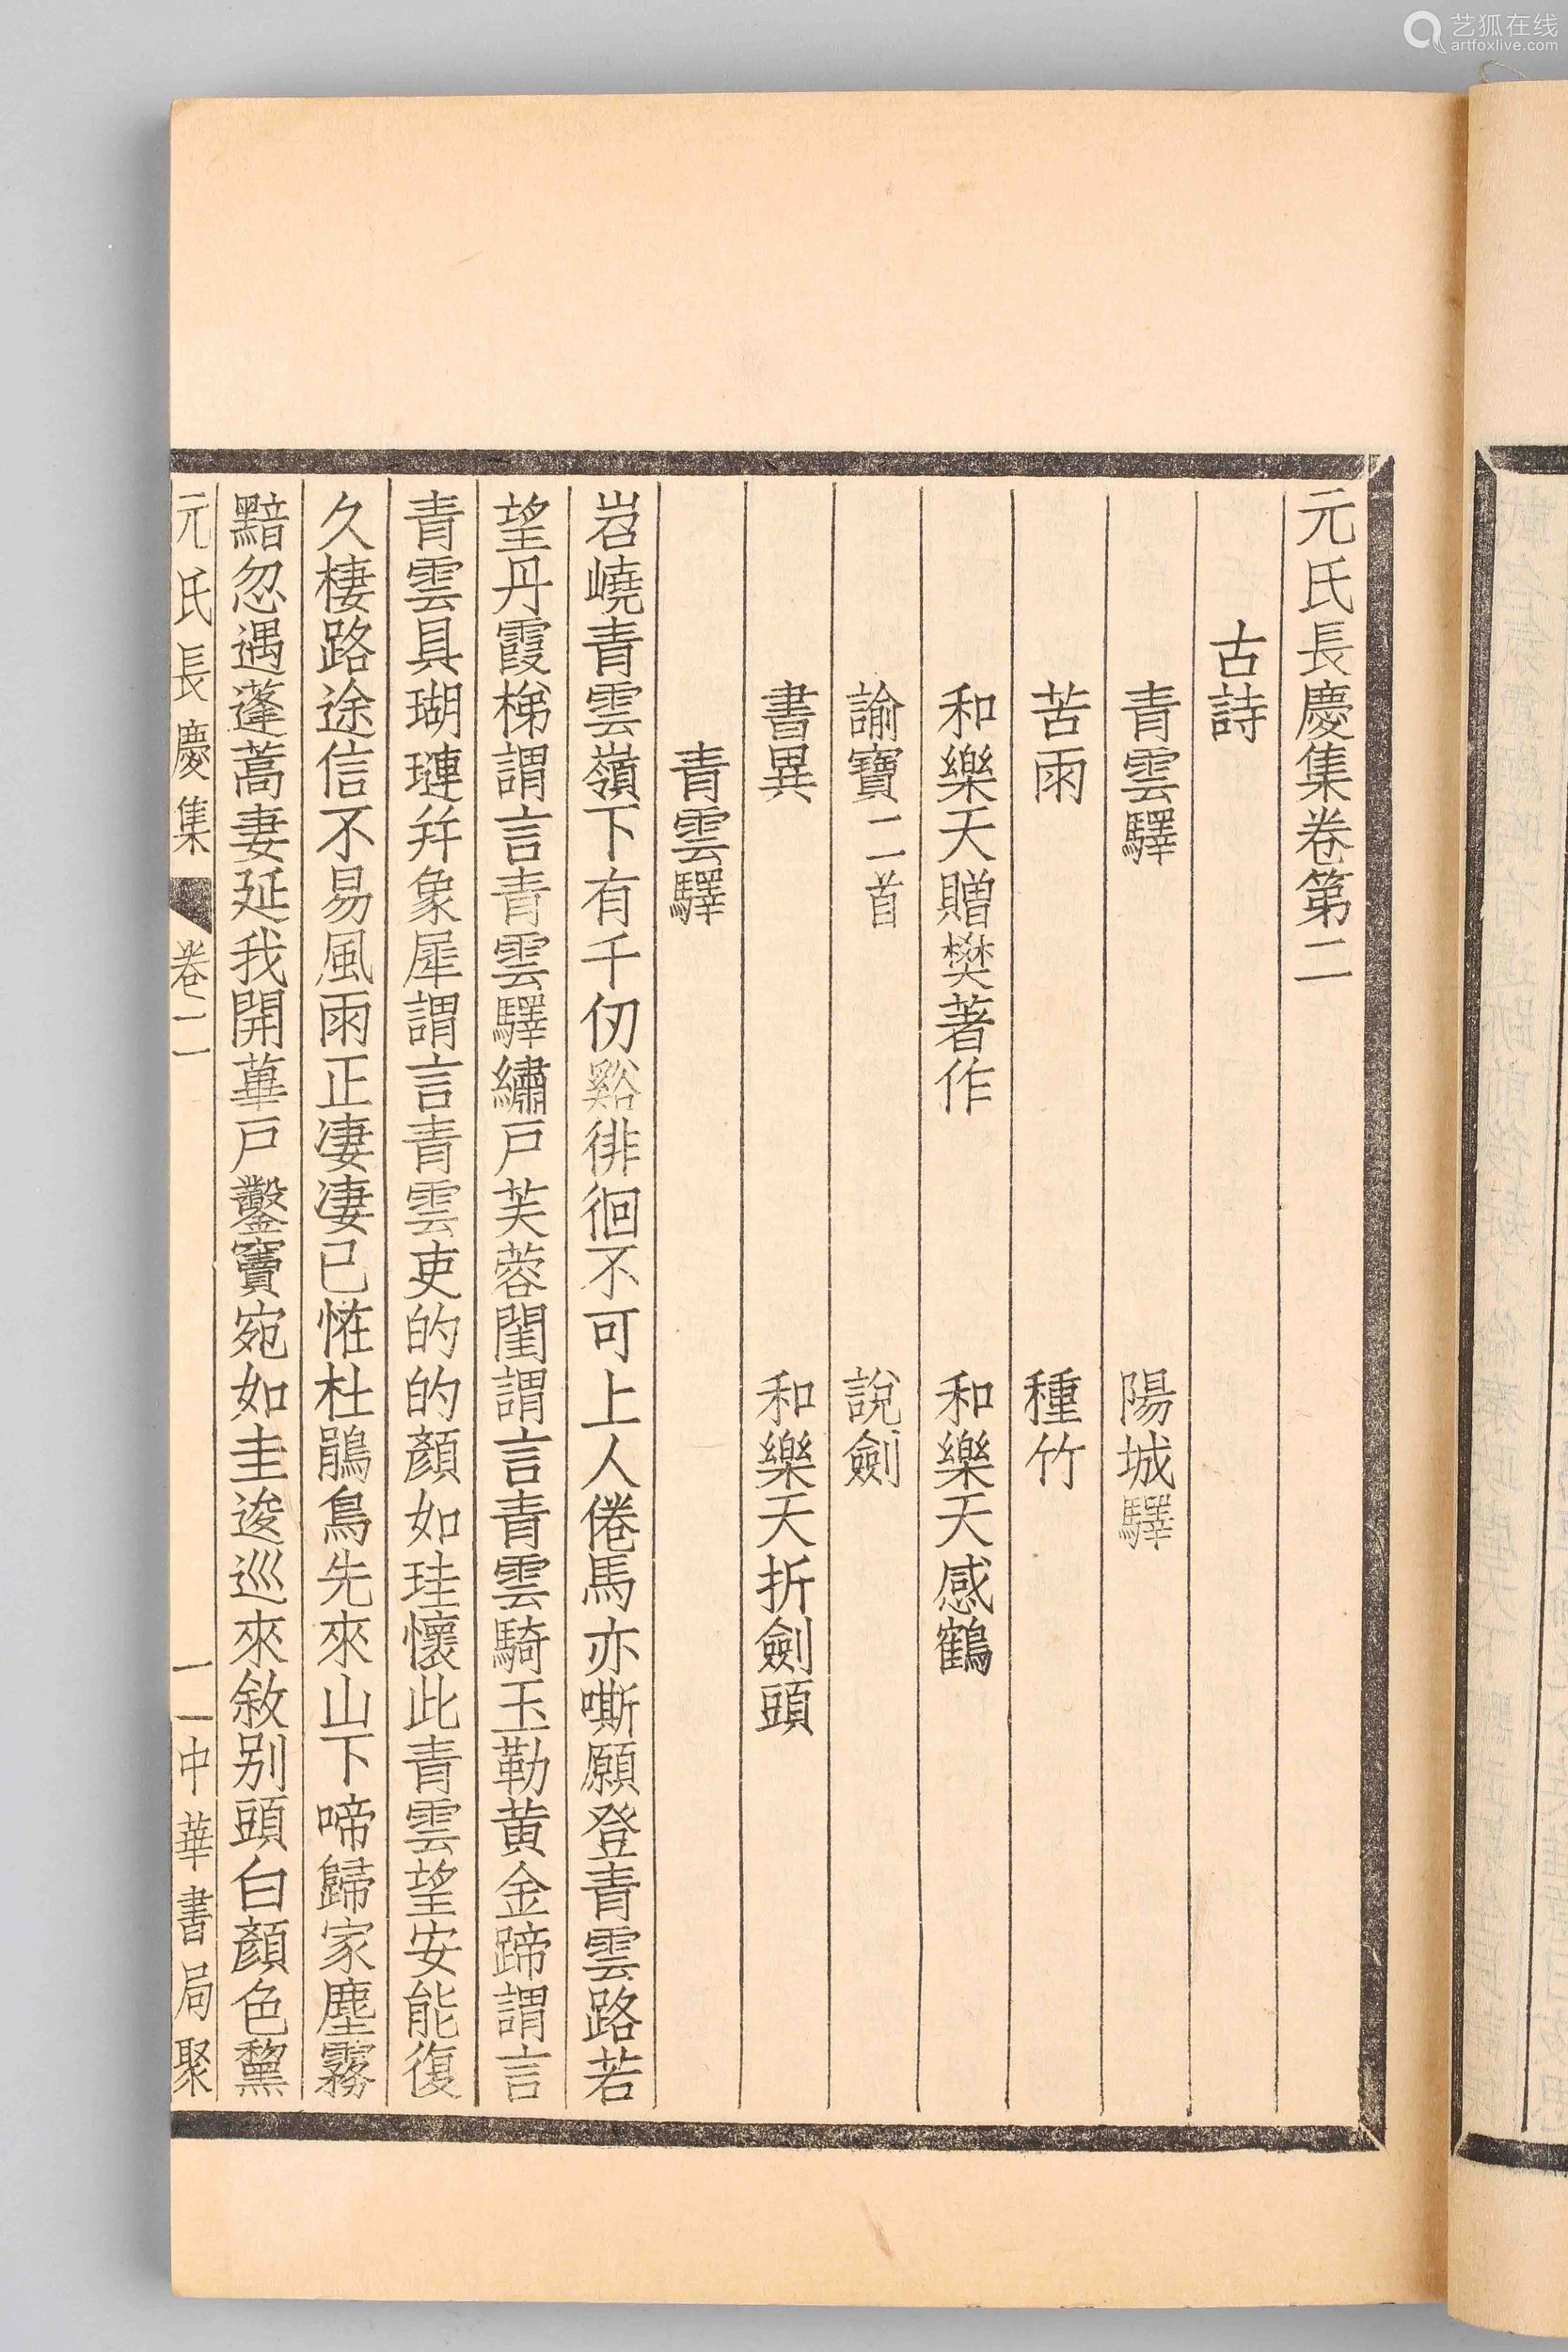 艺狐在线
artfoxlive.com
元氏長慶集卷第二
古詩
青雲驛 陽城驛
苦雨 種竹
和樂天贈樊著作 和樂天感鶴
諭寶二首 說劍
書異 和樂天折劍頭
青雲驛
岧嶢青雲嶺下有千仞谿徘徊不可上人倦馬亦嘶願登青雲路若
望丹霞梯謂言青雲驛繡戶芙蓉閨謂言青雲騎玉勒黃金蹄謂言
青雲具瑚璉幷象犀謂言青雲吏的的顏如珪懷此青雲望安能復
久棲路途信不易風雨正淒淒已恠杜鵑鳥先來山下啼歸家塵霧
黯忽遇蓬蒿妻延我開蓽戶鑿竇宛如圭逡巡來敘別頭白顏色黧
元氏長慶集 卷二 一 中華書局聚